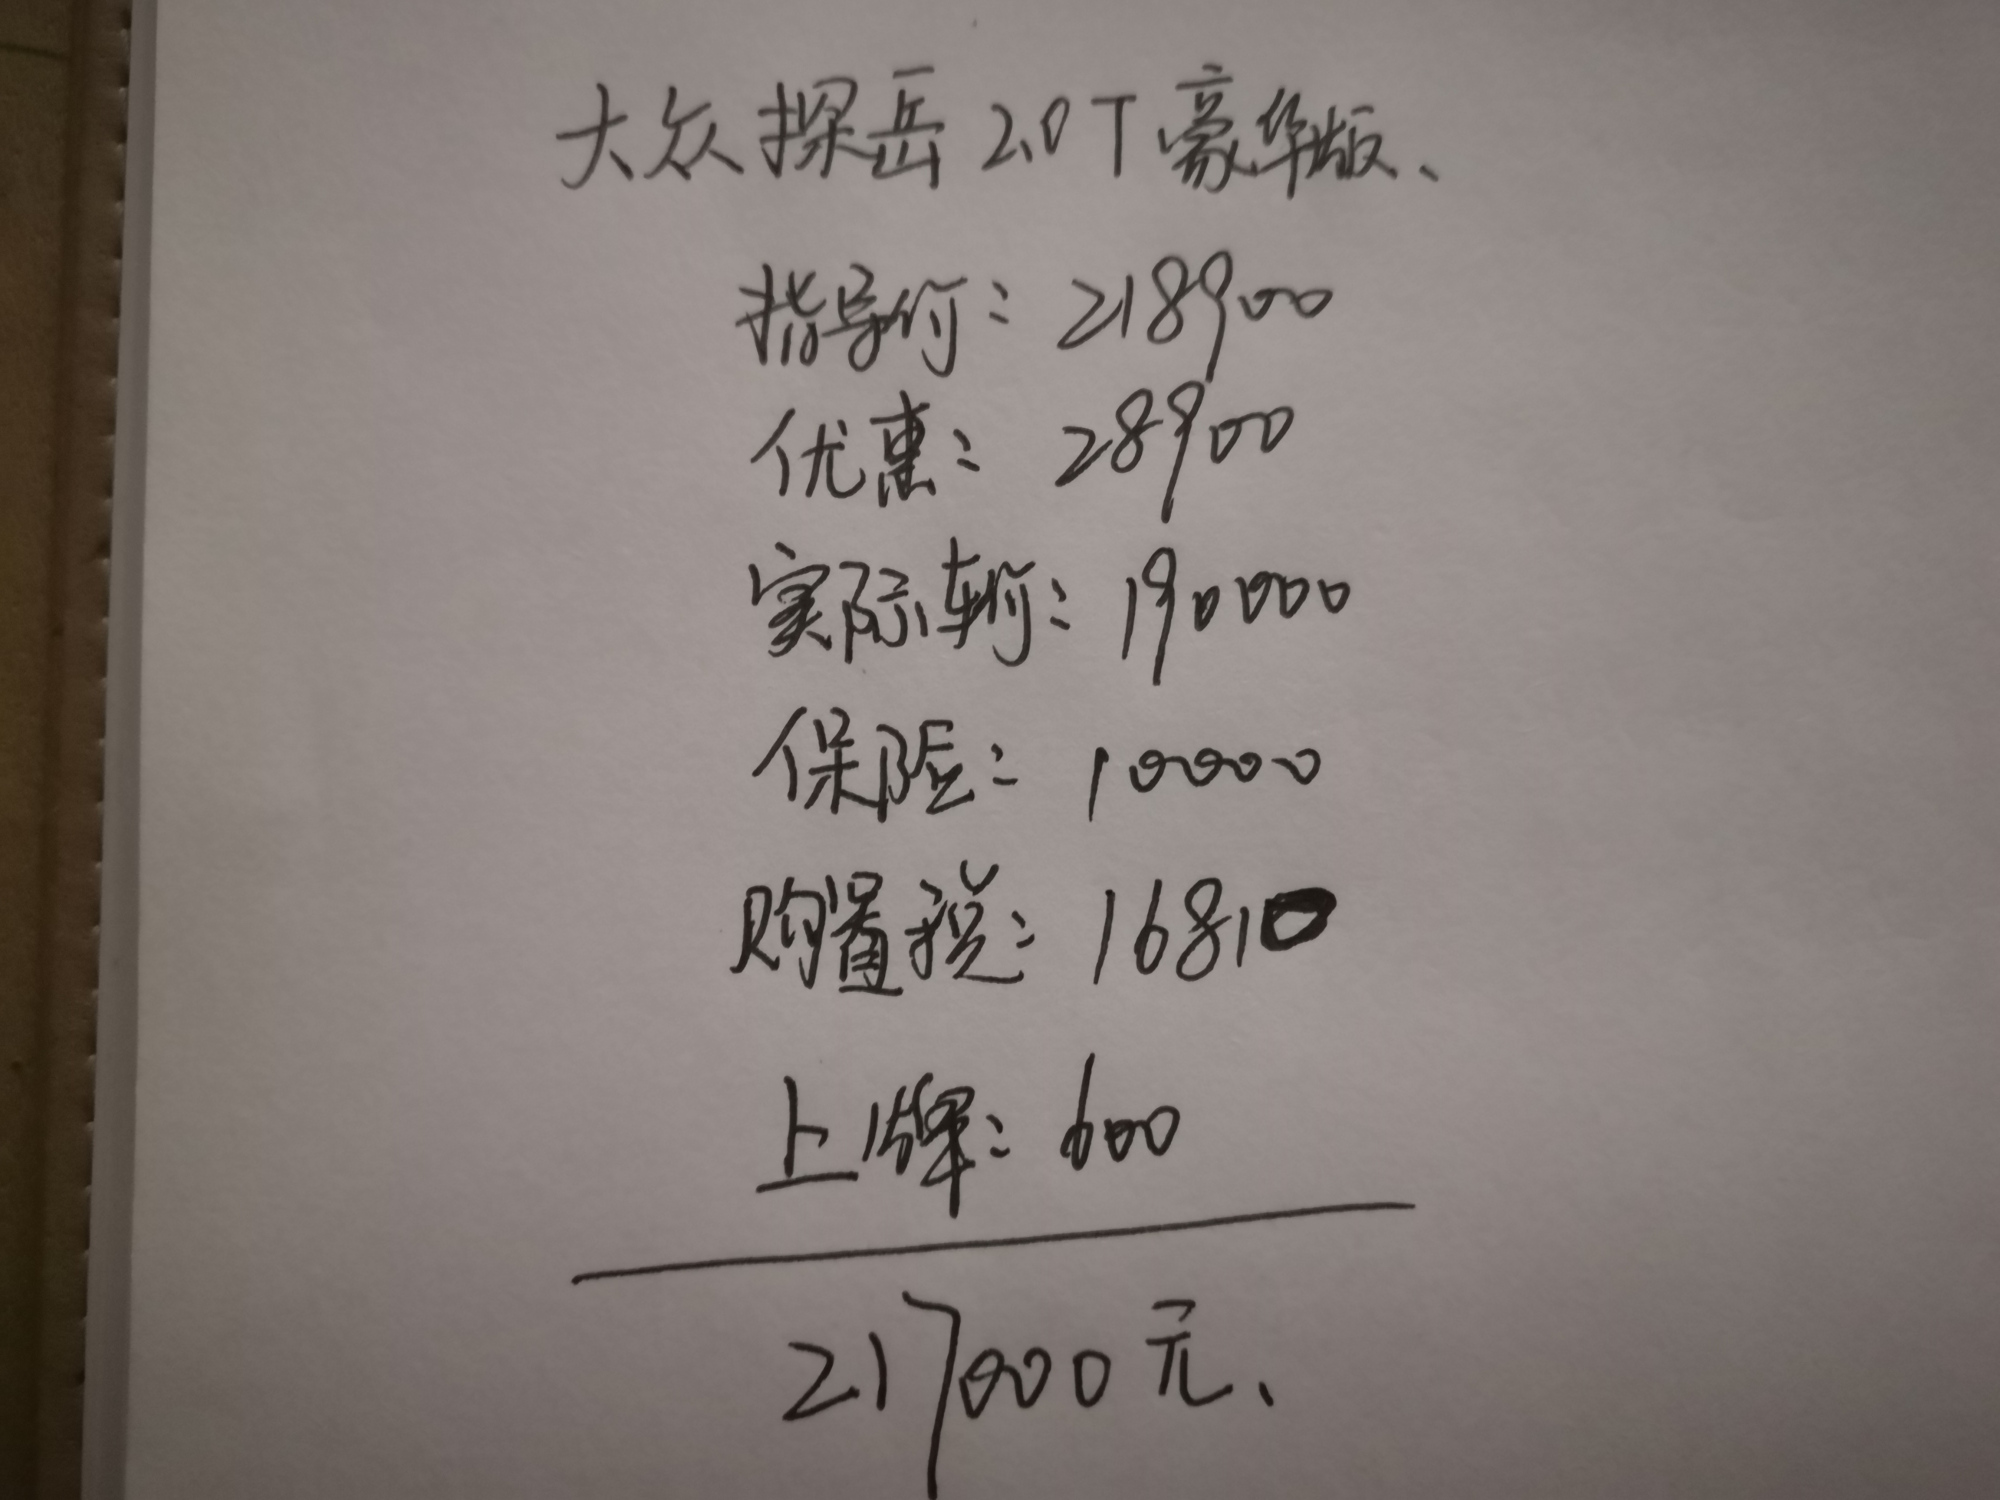 大众探岳2.0T豪华版、
指导价：218900
优惠：28900
实际车价：190000
保险：10000
购置税：16810
上牌：600
217000元、